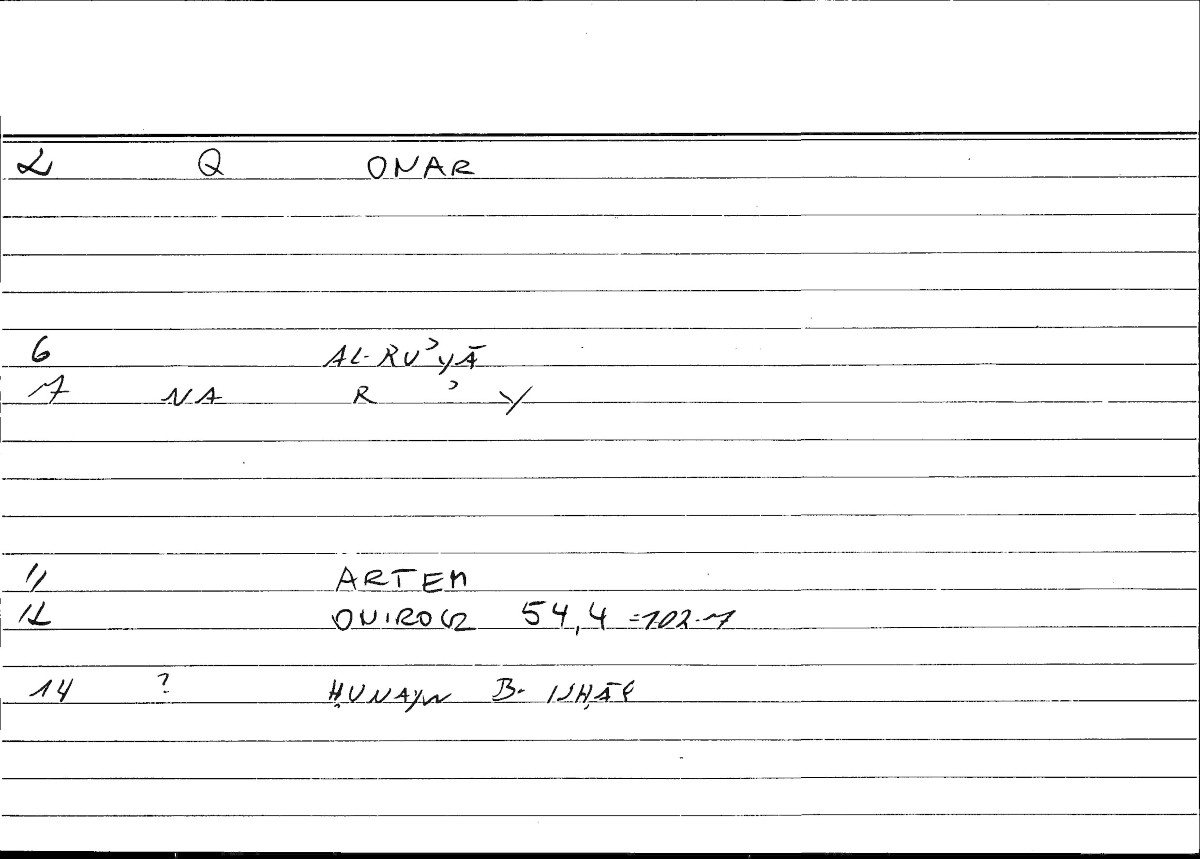 2 Q ONAR
6 AL-RUʾYĀ
7 NA R ʾ Y
11 ARTEM
12 ONIROCR 54,4 =102.7
14 ? ḤUNAYN B. ISḤĀQ